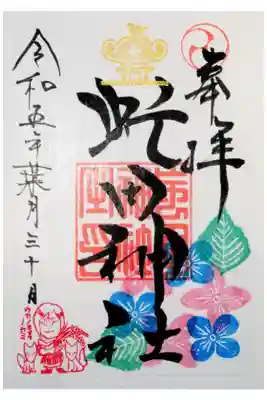 奉拝
虻田神社
令和五年葉月三十日